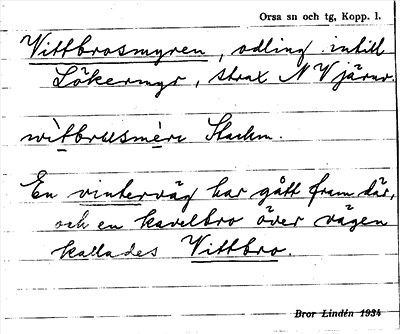 Orsa sn och tg, Kopp. l.
Vittbrosmyren, odling intill
Lökermyr, strax N V järnv.
wìtbrusmỳrı Stackm.
En vinterväg har gått fram där,
och en kavelbro över vägen
kallades Vittbro.
Bror Lindén 1934